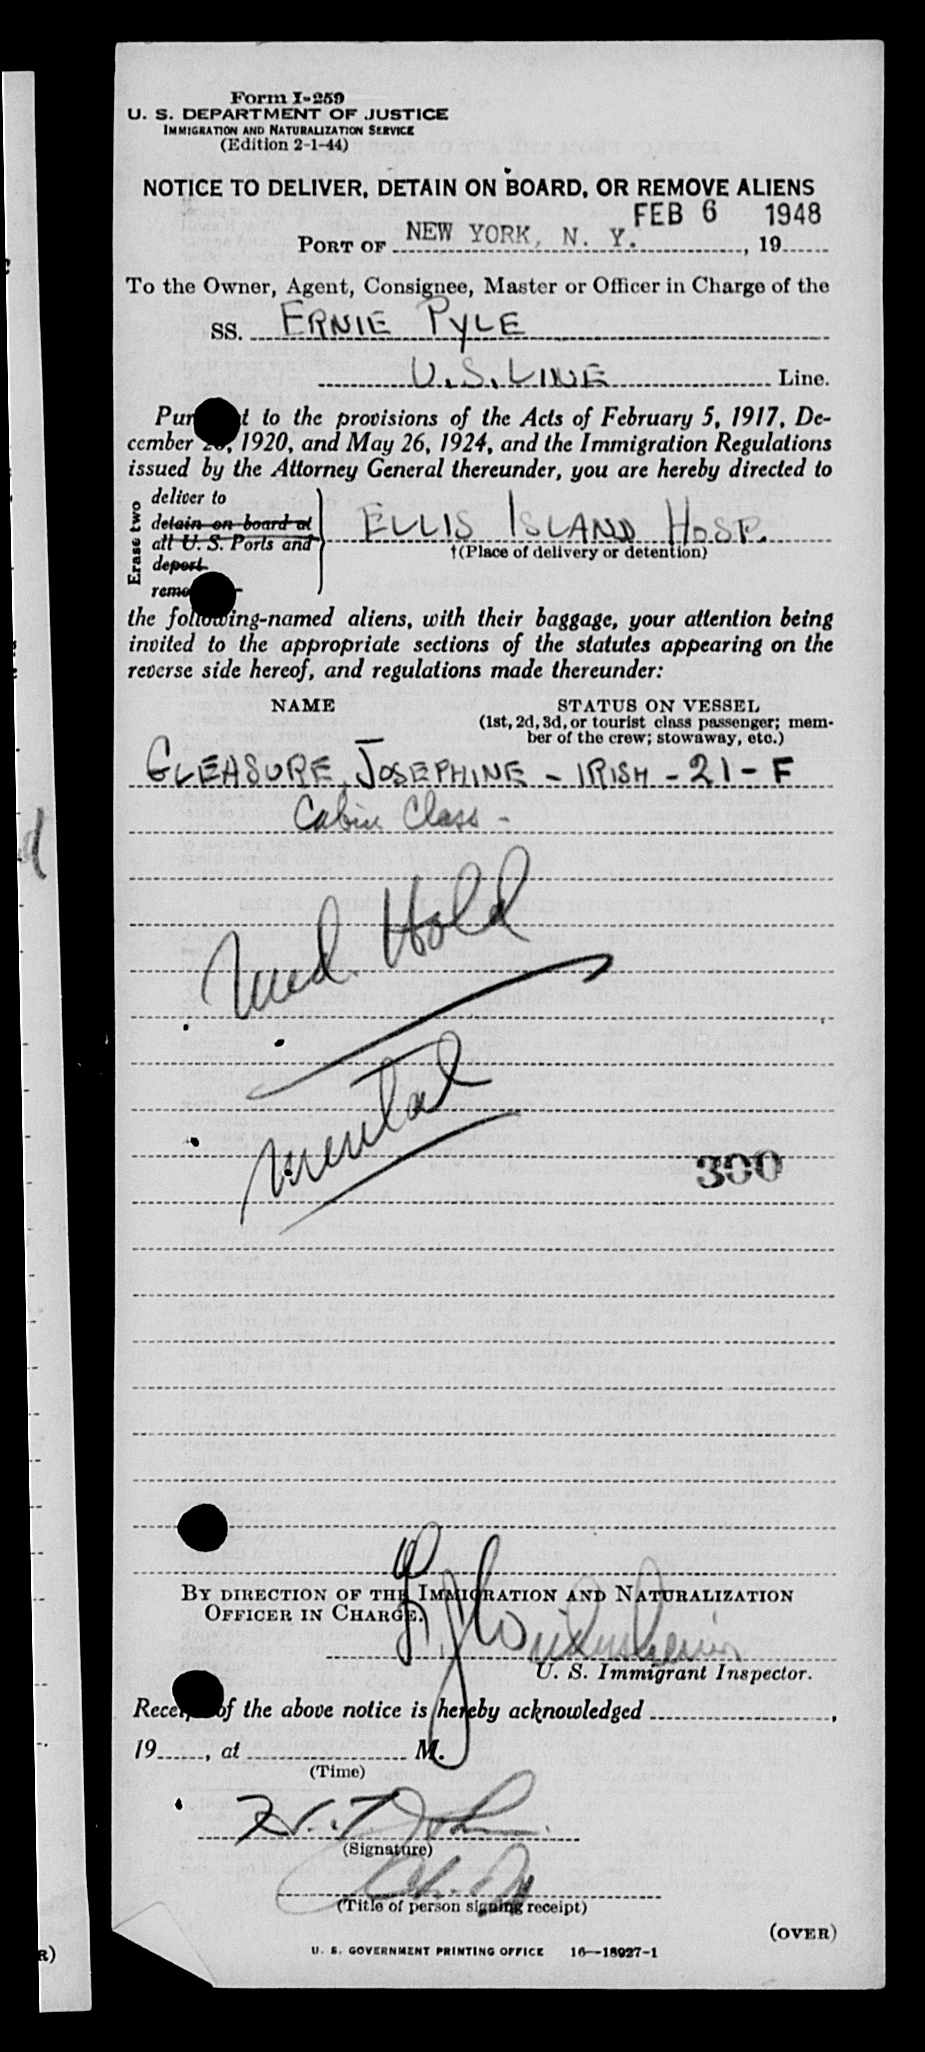 Form I-259
U. S. DEPARTMENT OF JUSTICE
IMMIGRATION AND NATURALIZATION SERVICE
(Edition 2-1-44)
NOTICE TO DELIVER, DETAIN ON BOARD, OR REMOVE ALIENS
FEB 6 1948
PORT OF NEW YORK, N. Y. , 19
To the Owner, Agent, Consignee, Master or Officer in Charge of the
SS. ERNIE PYLE
U.S. LINE Line.
Pur t to the provisions of the Acts of February 5, 1917, De-
cember , 1920, and May 26, 1924, and the Immigration Regulations
issued by the Attorney General thereunder, you are hereby directed to
Erase two
deliver to
detain on board at
all U. S. Ports and
deport
remo
ELLIS ISLAND HOSP.
†(Place of delivery or detention)
the following-named aliens, with their baggage, your attention being
invited to the appropriate sections of the statutes appearing on the
reverse side hereof, and regulations made thereunder:
NAME STATUS ON VESSEL
(1st, 2d, 3d, or tourist class passenger; mem-
ber of the crew; stowaway, etc.)
GLEASURE, JOSEPHINE - IRISH - 21 - F
Cabin Class -
Med. Hold
Mental
300
BY DIRECTION OF THE IMMIGRATION AND NATURALIZATION
OFFICER IN CHARGE.
U. S. Immigrant Inspector.
Receipt of the above notice is hereby acknowledged ,
19 , at M.
(Time)
(Signature)
(Title of person signing receipt)
(OVER)
U. S. GOVERNMENT PRINTING OFFICE 16—18927-1
R)